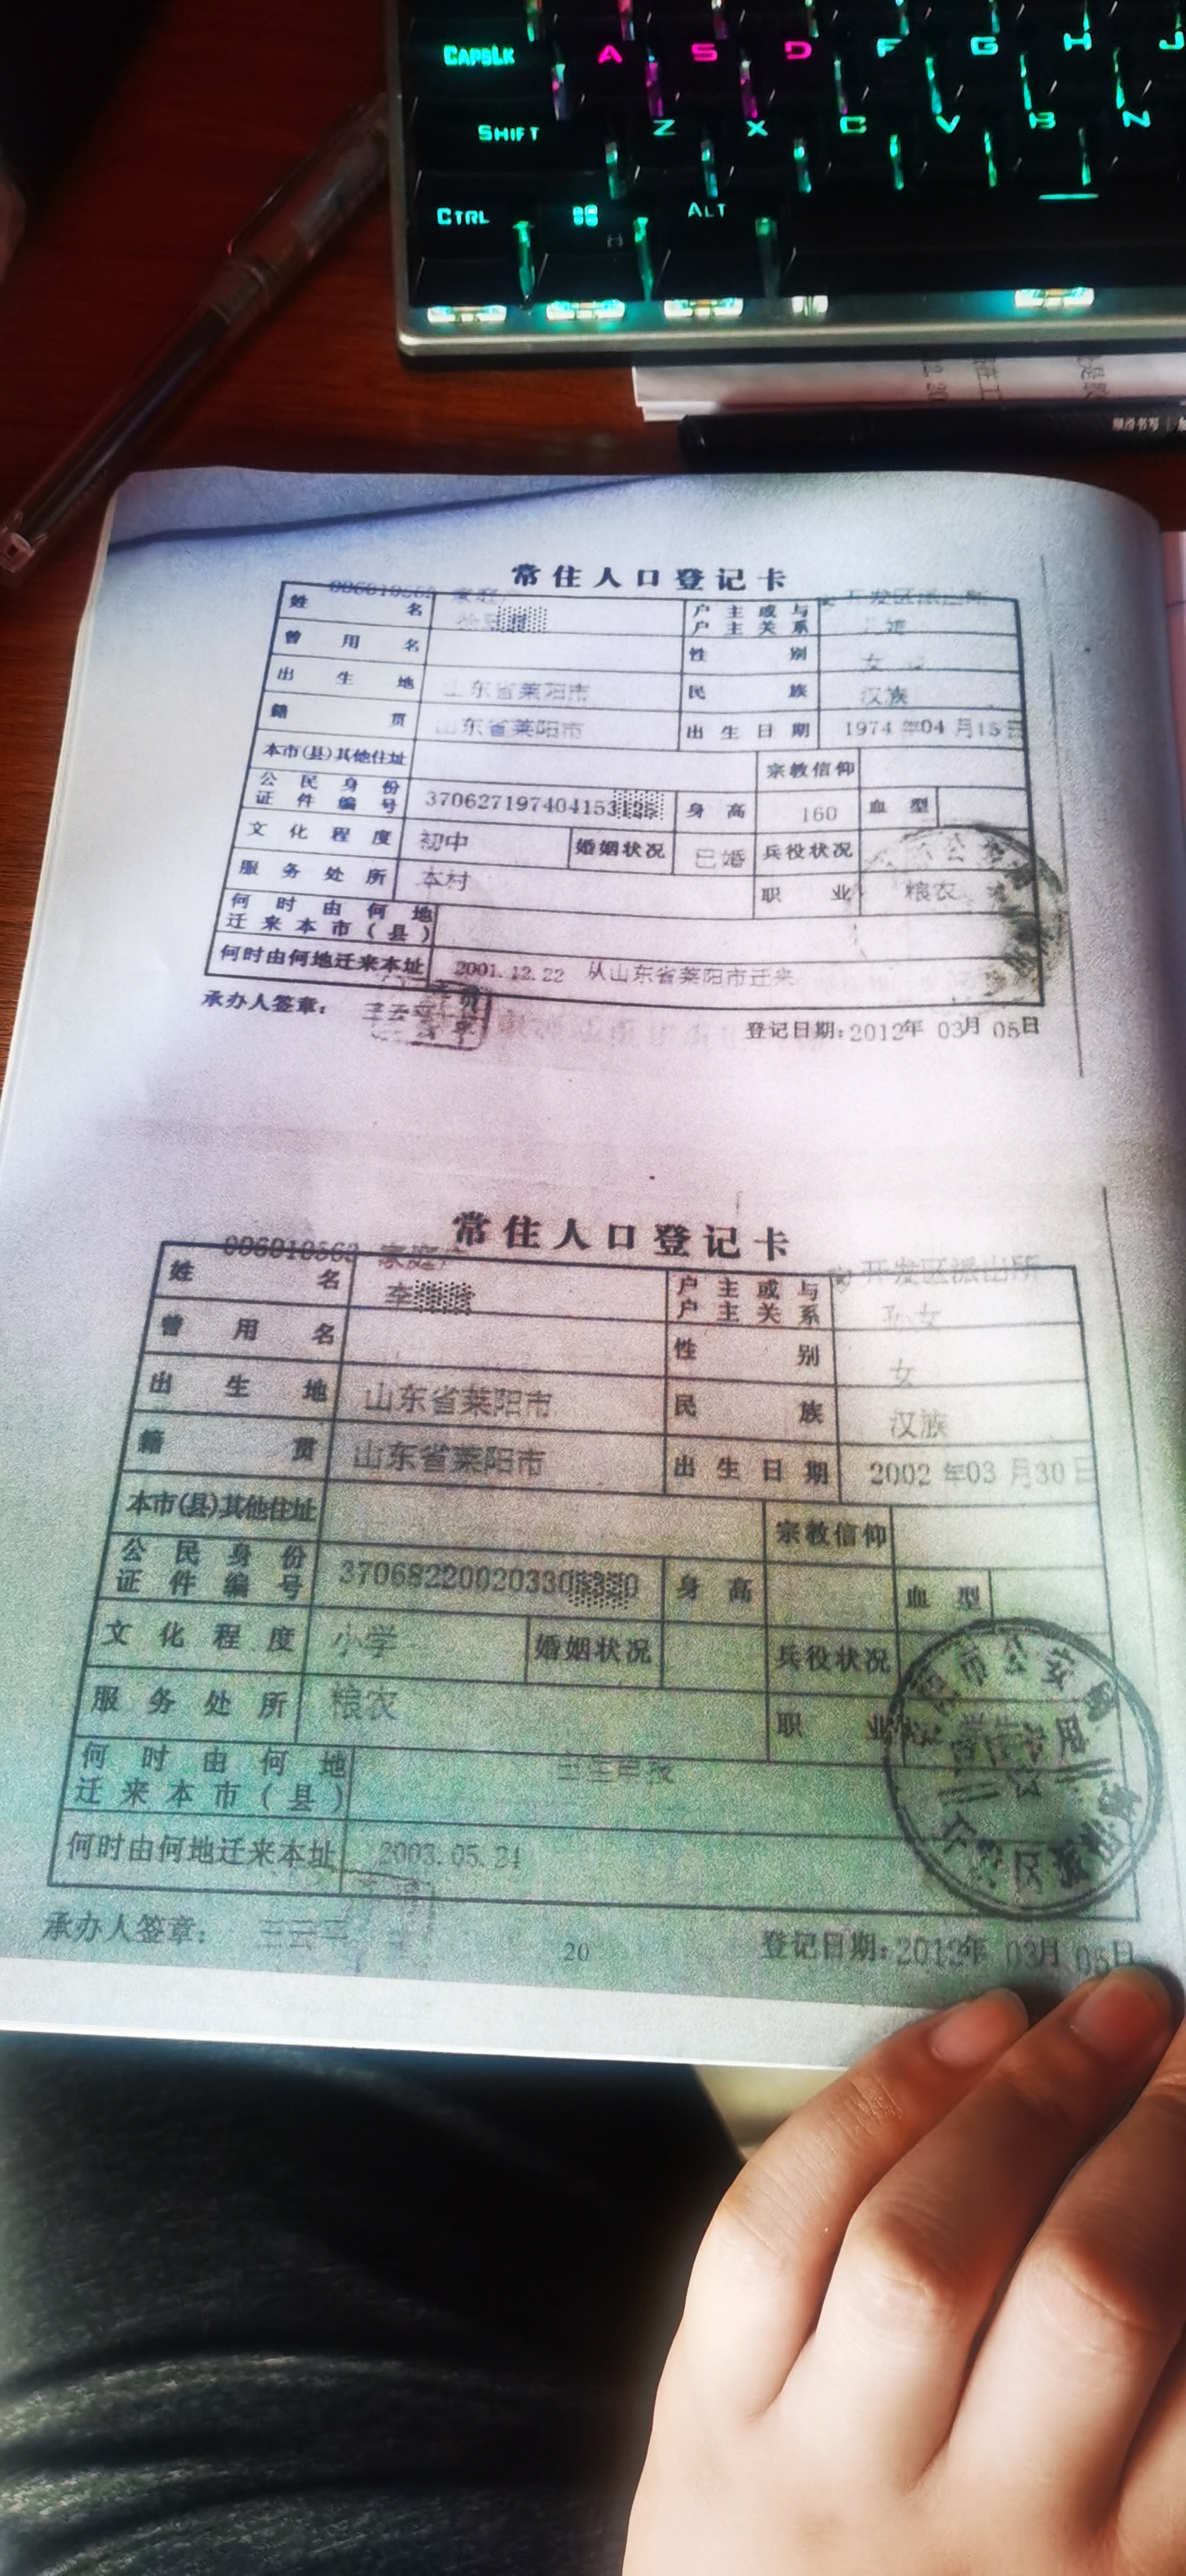 CAPSLK A S D F G H J
SHIFT Z X C V B N
CTRL ALT
顺滑书写
常住人口登记卡
姓名 户主或与户主关系
曾用名 性别 女
出生地 山东省莱阳市 民族 汉族
籍贯 山东省莱阳市 出生日期 1974年04月15日
本市(县)其他住址 宗教信仰
公民身份证件编号 身高 160 血型
文化程度 初中 婚姻状况 已婚 兵役状况
服务处所 本村 职业 粮农
何时由何地迁来本市(县)
何时由何地迁来本址 2001.12.22 从山东省莱阳市迁来
承办人签章: 登记日期:2012年03月05日
常住人口登记卡
006010563 家庭户 开发区派出所
姓名 李 户主或与户主关系 孙女
曾用名 性别 女
出生地 山东省莱阳市 民族 汉族
籍贯 山东省莱阳市 出生日期 2002年03月30日
本市(县)其他住址 宗教信仰
公民身份证件编号 身高 血型
文化程度 小学 婚姻状况 兵役状况
服务处所 粮农 职业
何时由何地迁来本市(县)
何时由何地迁来本址 2003.05.24
承办人签章: 登记日期:2012年03月05日
20